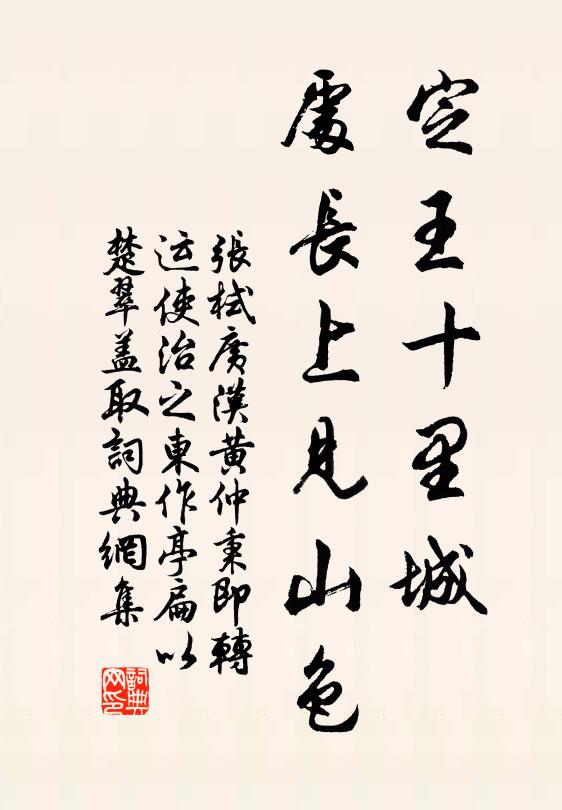 定王十里城
處長上見山色
張栻廣漢黃仲秉即轉
运使治之東作亭扁以
楚翠盖取詞典網集
詞典网印